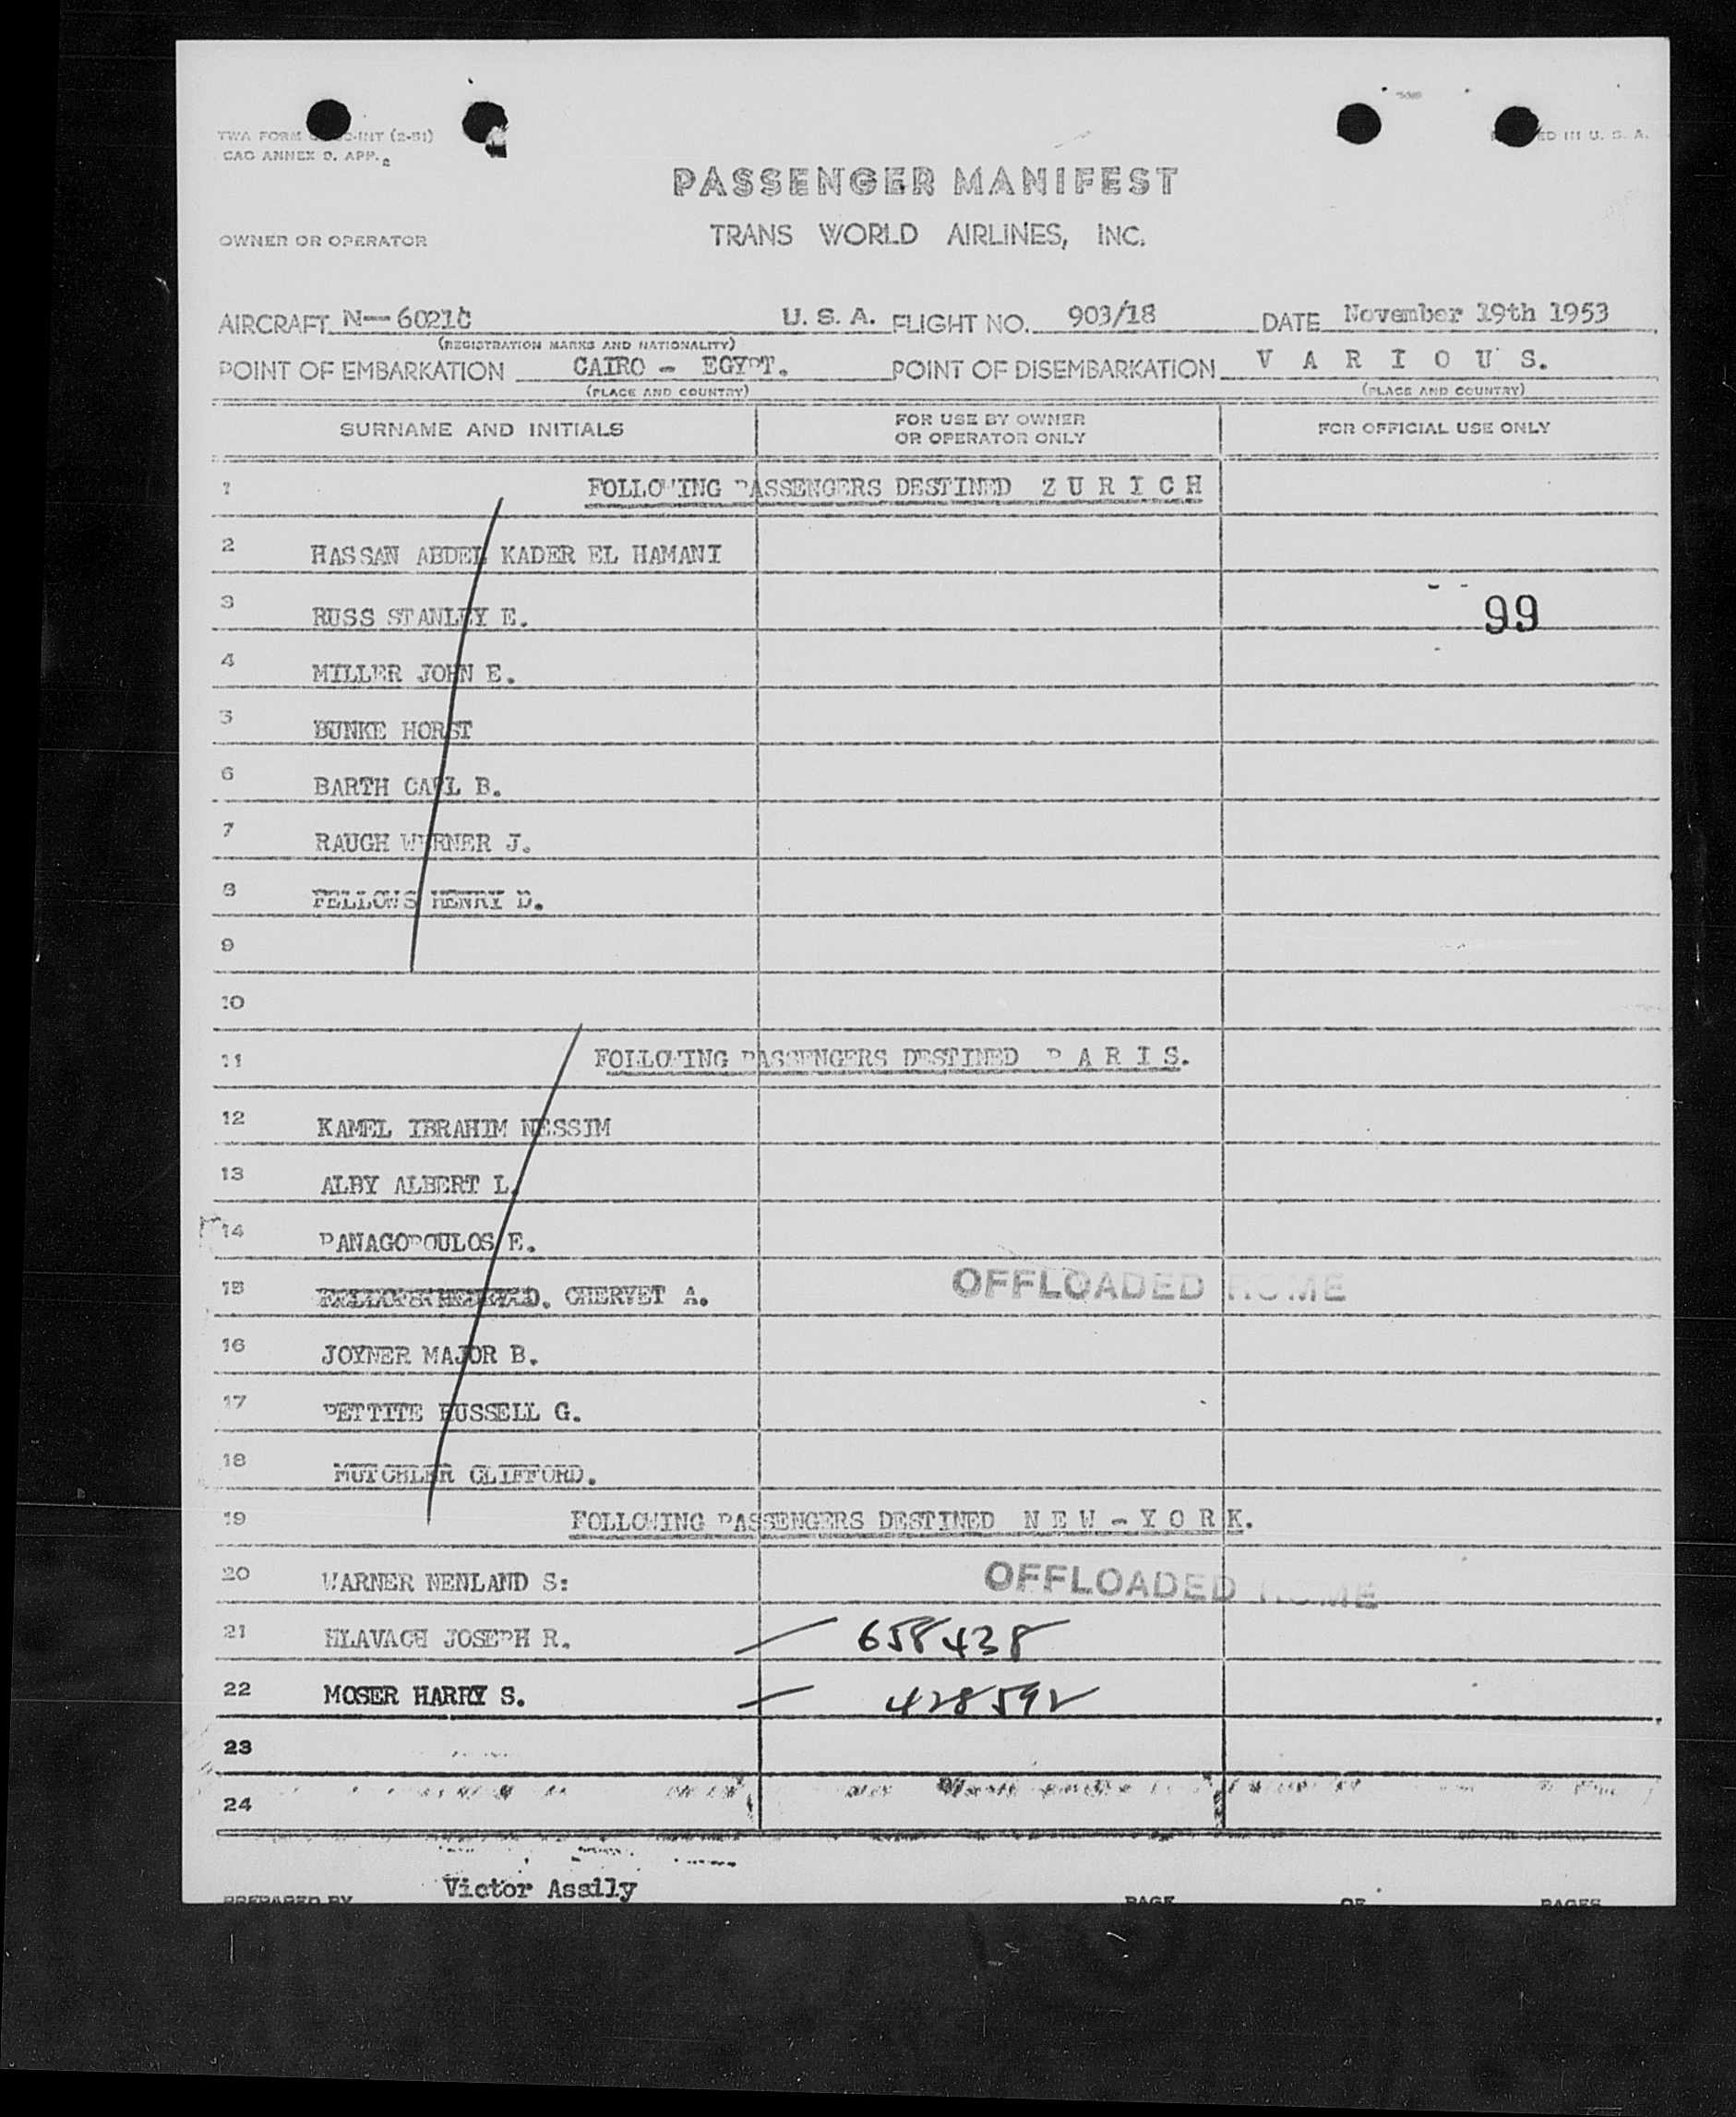 TWA FORM -INT (2-51)
CAO ANNEX 9, APP. 2
ED IN U. S. A.
PASSENGER MANIFEST
OWNER OR OPERATOR TRANS WORLD AIRLINES, INC.
AIRCRAFT N-6021C U. S. A. FLIGHT NO. 903/18 DATE November 19th 1953
(REGISTRATION MARKS AND NATIONALITY)
POINT OF EMBARKATION CAIRO - EGYPT. POINT OF DISEMBARKATION V A R I O U S.
(PLACE AND COUNTRY) (PLACE AND COUNTRY)
SURNAME AND INITIALS FOR USE BY OWNER OR OPERATOR ONLY FOR OFFICIAL USE ONLY
1 FOLLOWING PASSENGERS DESTINED Z U R I C H
2 HASSAN ABDEL KADER EL HAMANI
3 RUSS STANLEY E. 99
4 MILLER JOHN E.
5 BUNKE HORST
6 BARTH CARL B.
7 RAUGH WERNER J.
8 FELLOWS HENRY D.
9
10
11 FOLLOWING PASSENGERS DESTINED P A R I S.
12 KAMEL IBRAHIM NESSIM
13 ALBY ALBERT L.
14 PANAGOPOULOS E.
15 D. CHERVET A. OFFLOADED ROME
16 JOYNER MAJOR B.
17 PETTITE RUSSELL G.
18 MUTCHLER CLIFFORD.
19 FOLLOWING PASSENGERS DESTINED N E W - Y O R K.
20 WARNER NENLAND S: OFFLOADED ROME
21 HLAVACH JOSEPH R. — 658438
22 MOSER HARRY S. — 428592
23
24
PREPARED BY Victor Assily PAGE OF PAGES